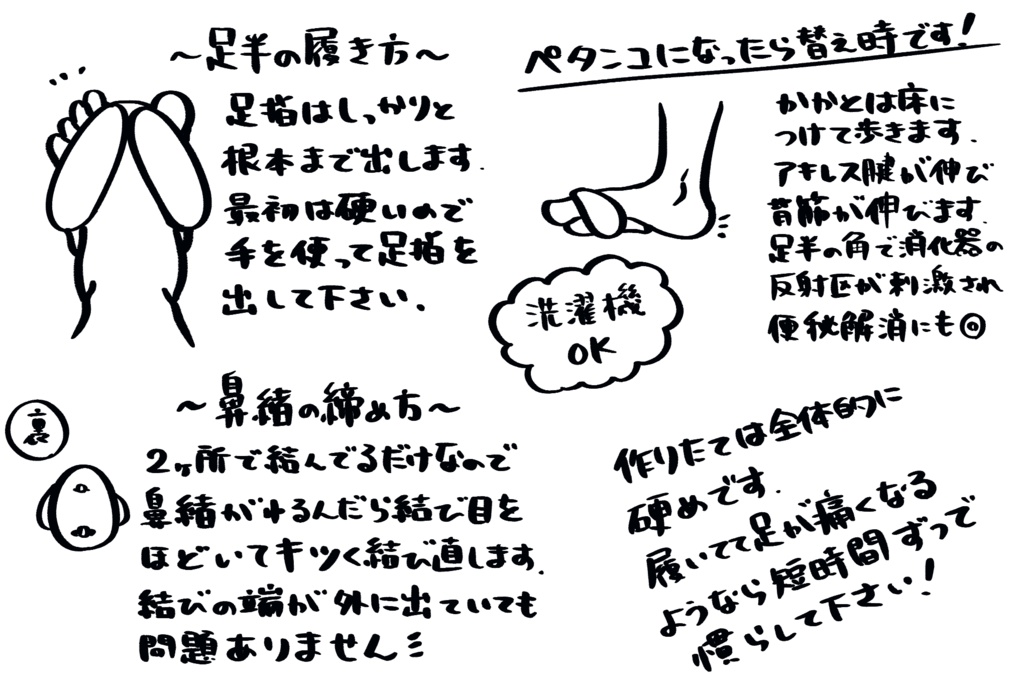 〜足半の履き方〜
足指はしっかりと
根本まで出します.
最初は硬いので
手を使って足指を
出して下さい.
ペタンコになったら替え時です!
かかとは床に
つけて歩きます.
アキレス腱が伸び
背筋が伸びます.
足半の角で消化器の
反射区が刺激され
便秘解消にも◎
洗濯機
OK
〜鼻緒の締め方〜
裏
2ヶ所で結んでるだけなので
鼻緒がゆるんだら結び目を
ほどいてキツく結び直します.
結びの端が外に出ていても
問題ありません
作りたては全体的に
硬めです.
履いてて足が痛くなる
ようなら短時間ずつで
慣らして下さい!